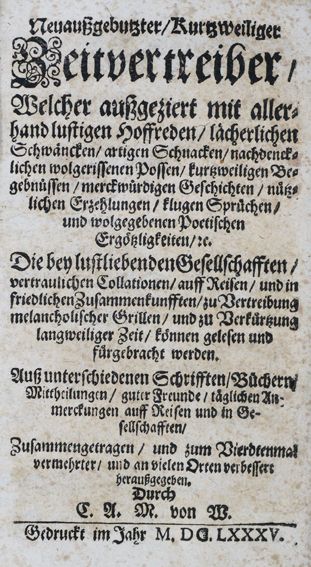 Neuaußgebutzter/Kurtzweiliger
Zeitvertreiber/
Welcher außgeziert mit aller-
hand lustigen Hoffreden/ lächerlichen
Schwäncken/ artigen Schnacken/ nachdenck-
lichen wolgerissenen Possen/ kurtzweiligen Be-
gebnüssen/ merckwürdigen Geschichten/ nütz-
lichen Erzehlungen/ klugen Sprüchen/
und wolgegebenen Poetischen
Ergötzligkeiten/ ꝛc.
Die bey lustliebenden Gesellschafften/
vertraulichen Collationen/ auff Reisen/ und in
friedlichen Zusammenkunfften/ zu Vertreibung
melancholischer Grillen/ und zu Verkürtzung
langweiliger Zeit/ können gelesen und
fürgebracht werden.
Auß unterschiedenen Schrifften/Büchern/
Mittheilungen/ guter Freunde/ täglichen An-
merckungen auff Reisen und in Ge-
sellschafften/
Zusammengetragen/ und zum Vierdtenmal
vermehrter/ und an vielen Orten verbessert
herausgegeben.
Durch
C. A. M. von W.
Gedruckt im Jahr M. DC. LXXXV.